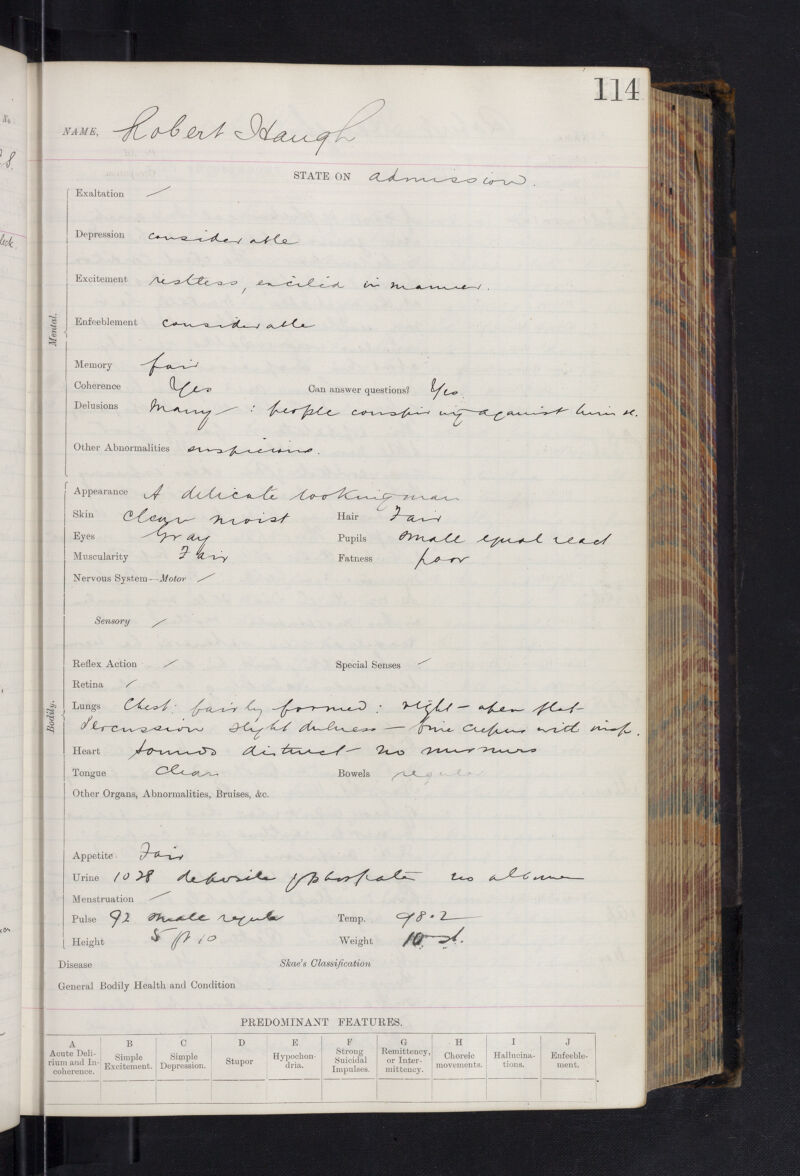 114
NAME, Robert Haugh
STATE ON admission.
Exaltation /
Depression considerable
Excitement restless, excited in manner.
Enfeeblement considerable
Mental.
Memory fair
Coherence Yes Can answer questions? Yes
Delusions Many : people conspiring against him &c.
Other Abnormalities suspicious.
Appearance A delicate looking man
Skin clear moist Hair Fair
Eyes Gray Pupils small equal react
Muscularity Fair Fatness poor
Nervous System—Motor /
Sensory /
Reflex Action / Special Senses /
Retina /
Bodily.
Lungs Chest: fairly formed: right - apex flat
Percussion slight dulness - fine creps with insp.
Heart sounds distinct no murmurs
Tongue Clean Bowels regular
Other Organs, Abnormalities, Bruises, &c.
Appetite Fair
Urine 1028 deposits phosphates no albumen
Menstruation /
Pulse 92 small regular Temp. 98.2
Height 5 ft 10 Weight 10 st.
Disease Skae's Classification
General Bodily Health and Condition
PREDOMINANT FEATURES.
A B C D E F G H I J
Acute Deli-
rium and In-
coherence.
Simple
Excitement.
Simple
Depression.
Stupor
Hypochon-
dria.
Strong
Suicidal
Impulses.
Remittency,
or Inter-
mittency.
Choreic
movements.
Hallucina-
tions.
Enfeeble-
ment.